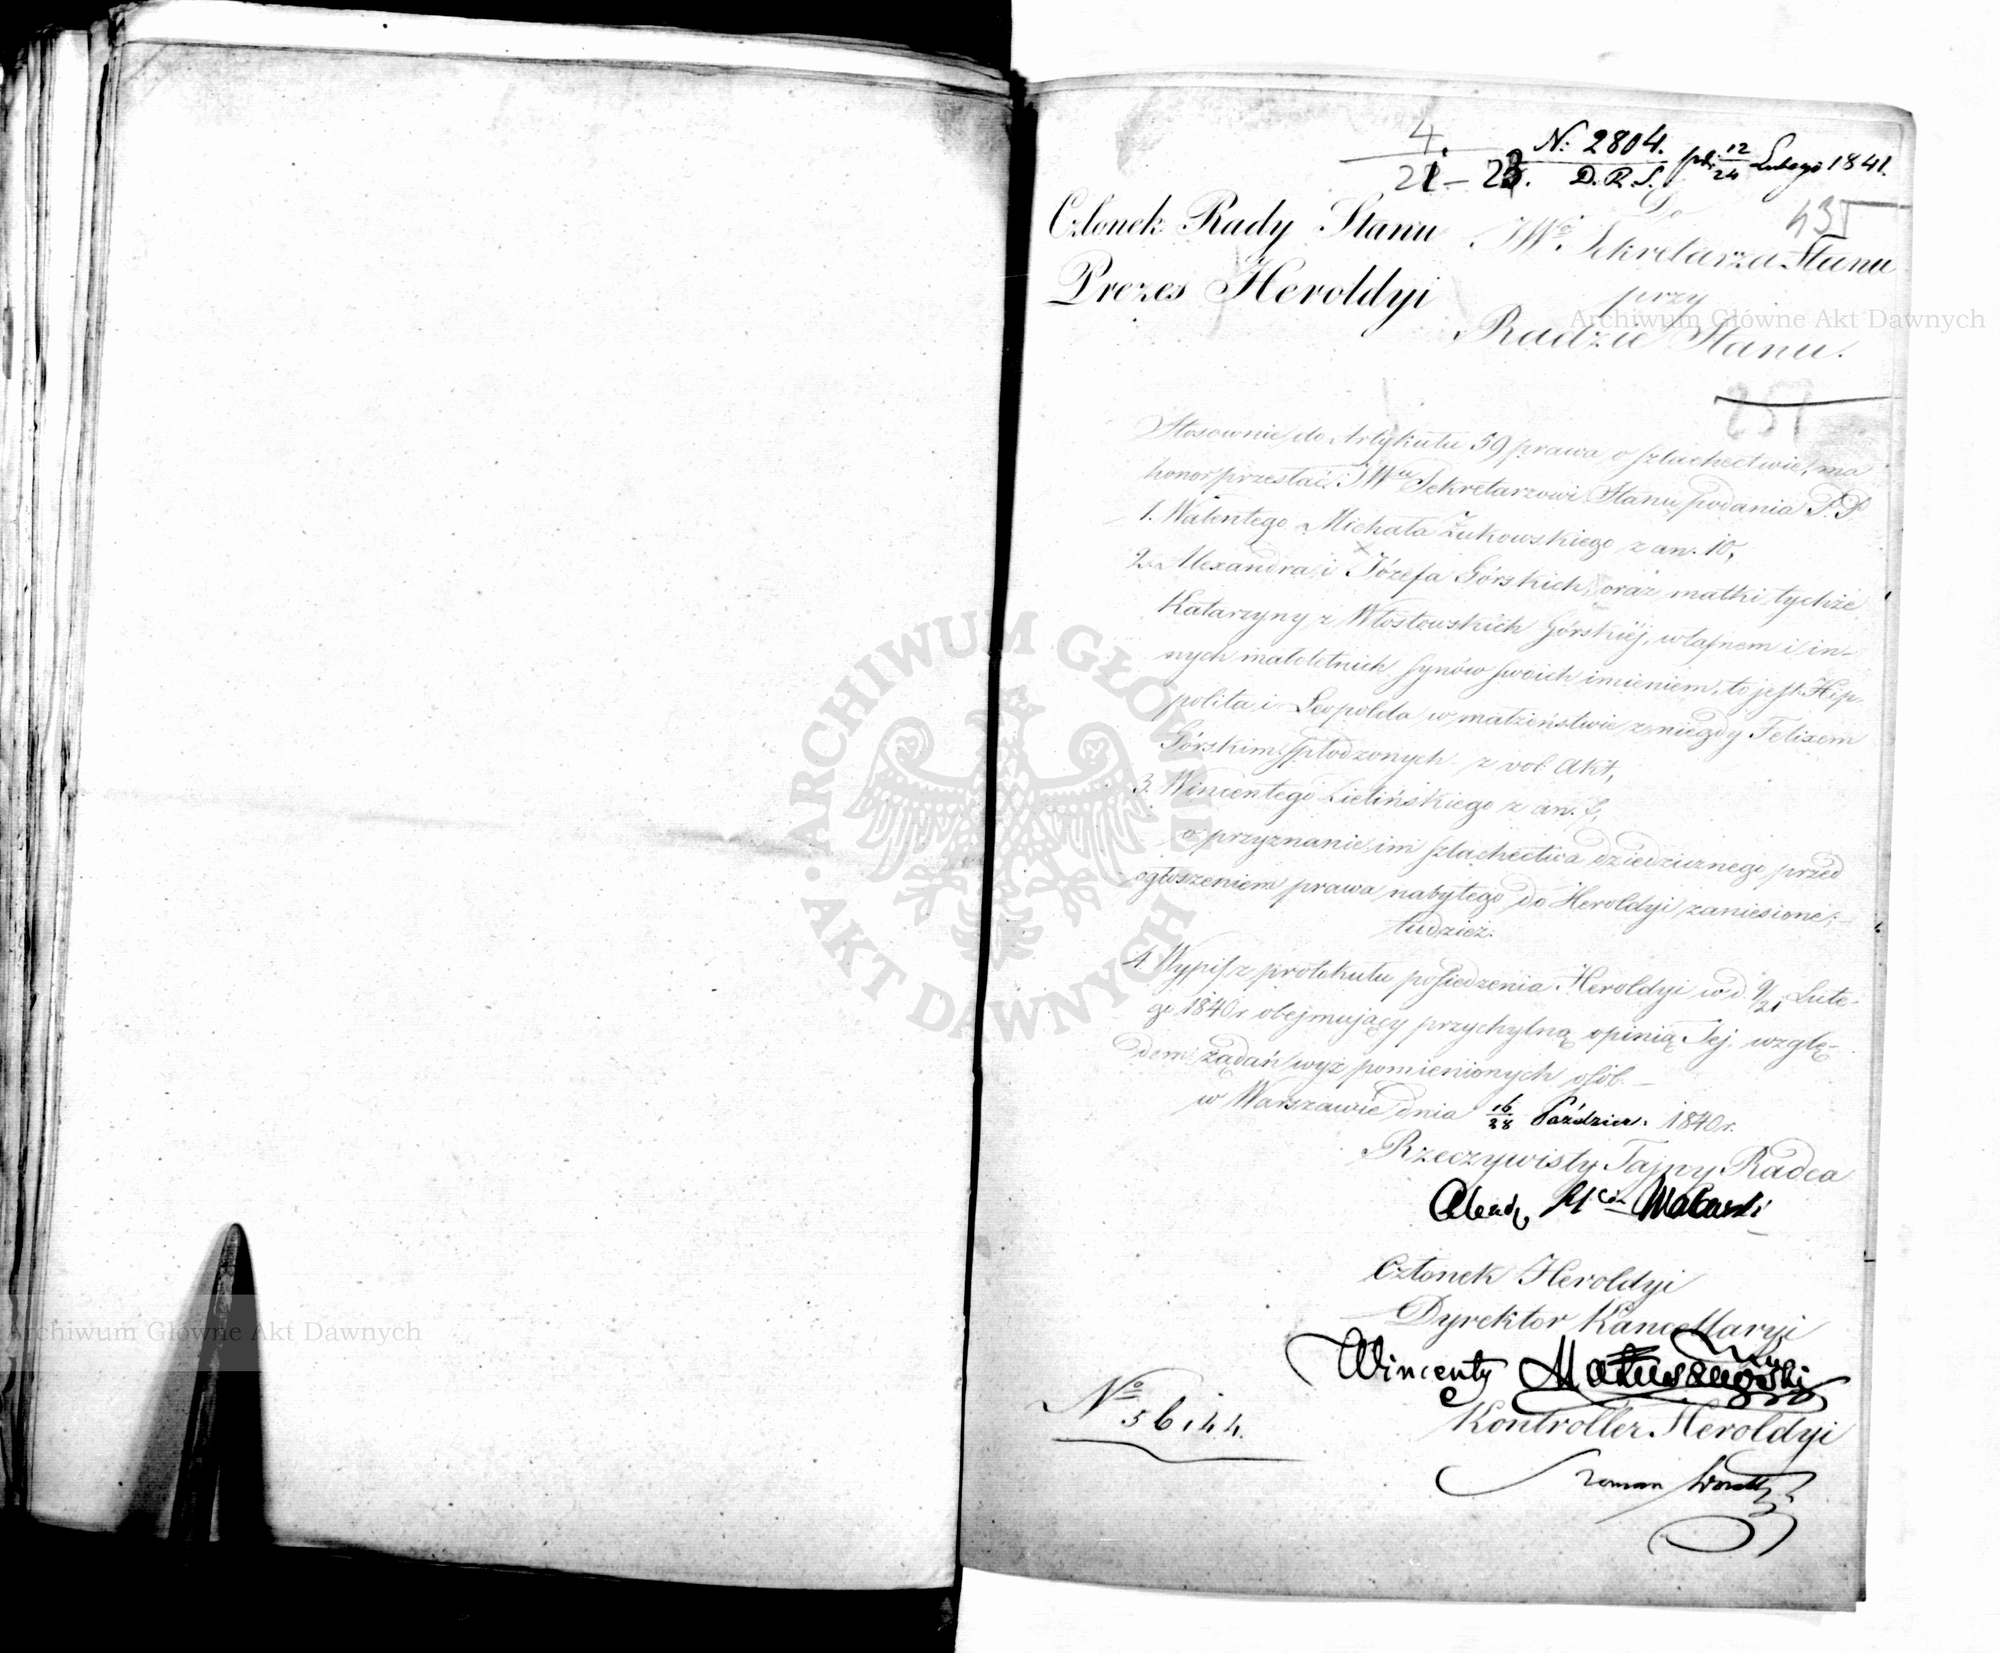 4.
21 – 23.
N: 2804. pdi 12/24 Lutego 1841.
D. R. S.
435
Członek Rady Stanu
Prezes Heroldyi
Do
JWo Sekretarza Stanu
przy
Radzie Stanu.
251
Stosownie do Artykułu 59 prawa o szlachectwie, ma
honor przesłać JWu Sekretarzowi Stanu podania P.P.
1. Walentego Michała Żukowskiego z an. 10,
2. Alexandra i Józefa Górskich, oraz matki tychże
Katarzyny z Włostowskich Górskiéj, własnem i in-
nych małoletnich synów swoich imieniem, to jest: Hip-
polita i Leopolda w małżeństwie z niegdy Felixem
Górskim spłodzonych z vol: akt,
3. Wincentego Zielińskiego z an.
o przyznanie im szlachectwa dziedzicznego przed
ogłoszeniem prawa nabytego do Heroldyi zaniesione;
tudzież.
4. Wypis z protokułu posiedzenia Heroldyi w d. 9/21 Lute-
go 1840 r. obejmujący przychylną opinią Jej, wzglę-
dem żądań wyż pomienionych osób. –
w Warszawie dnia 16/28 Paździer. 1840 r.
Rzeczywisty Tajny Radca
Członek Heroldyi
Dyrektor Kancellaryi
Wincenty Matuszewski
Kontroller Heroldyi
Roman
No
ARCHIWUM GŁÓWNE
AKT DAWNYCH
Archiwum Główne Akt Dawnych
Archiwum Główne Akt Dawnych